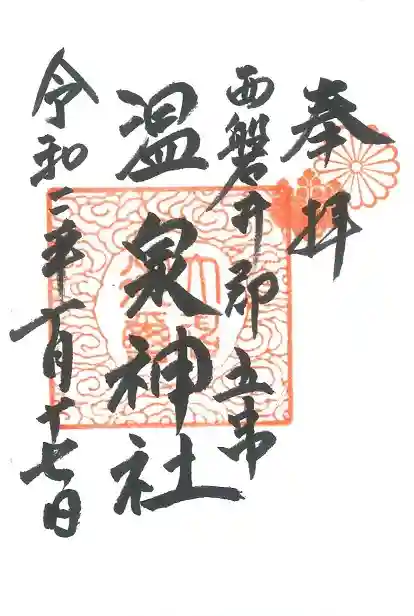 奉拝
西磐井郡 五串
温泉神社
令和二年一月十七日